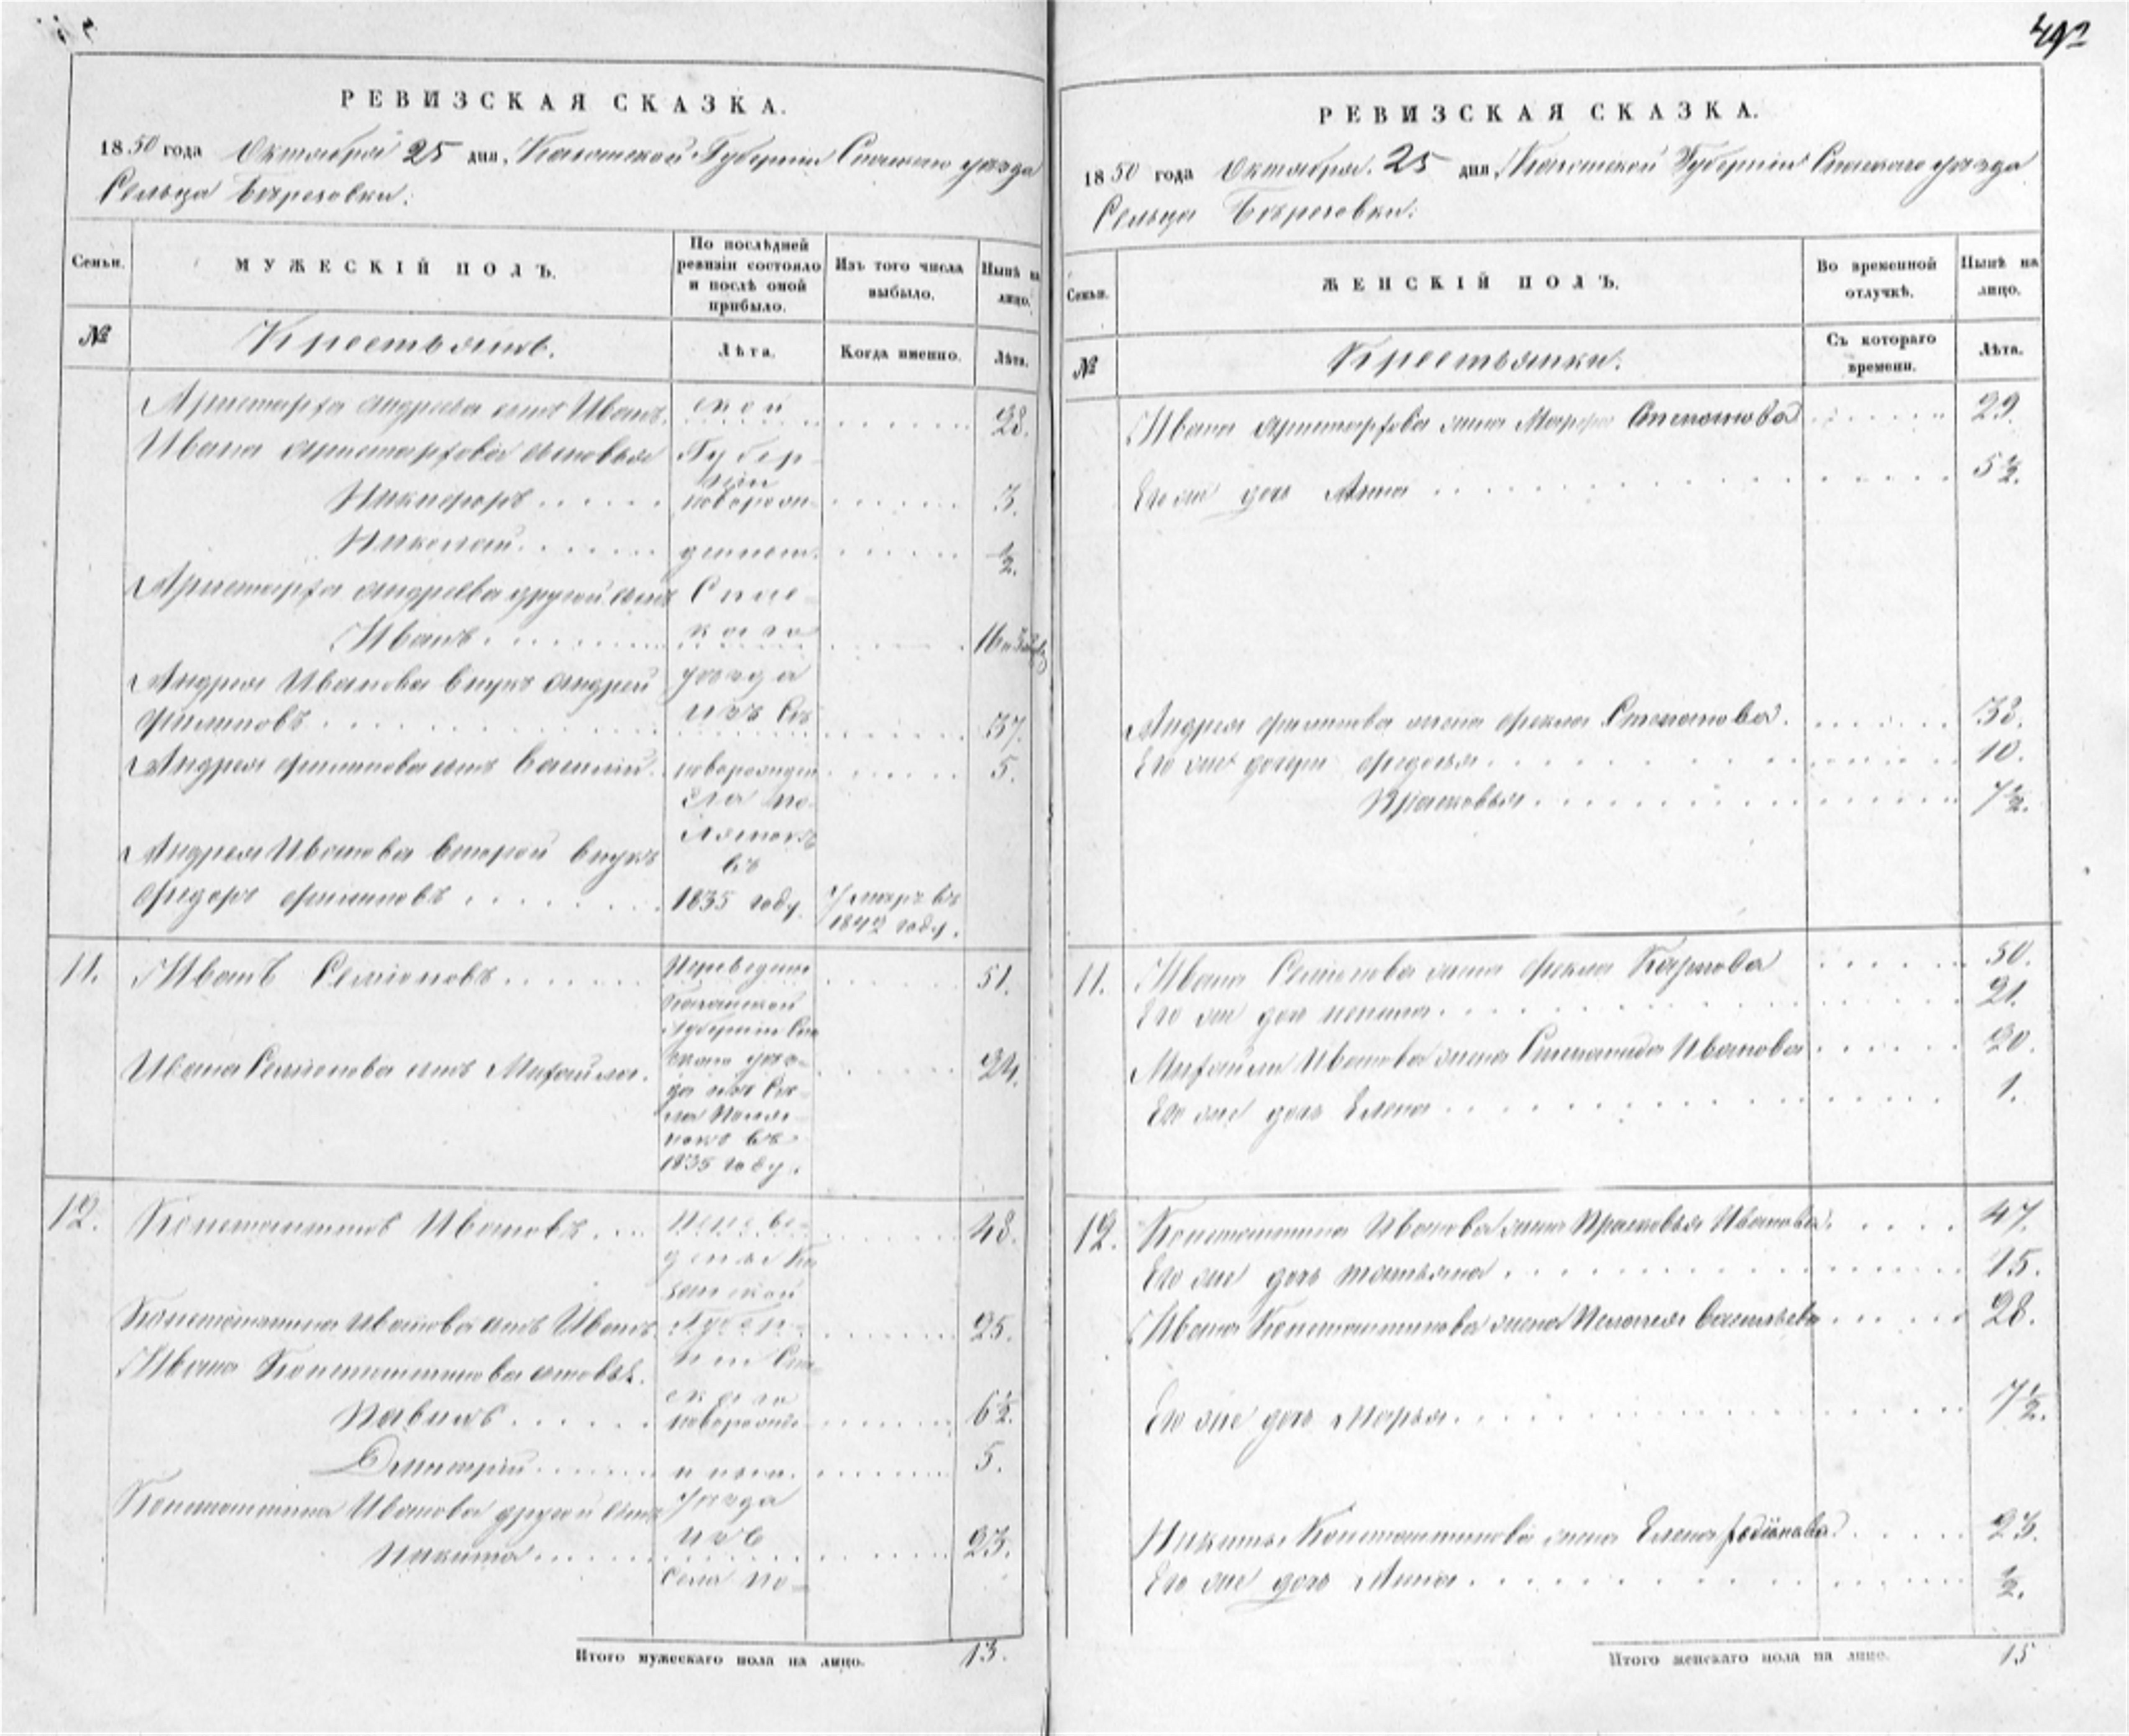 492
РЕВИЗСКАЯ СКАЗКА.
1850 года Октября 25 дня, Казанской Губернии Спаскаго уезда
Сельца Березовки.
Семьи.
МУЖЕСКІЙ ПОЛЪ.
По послѣдней ревизіи состояло и послѣ оной прибыло.
Изъ того числа выбыло.
Нынѣ на лицо.
№
Крестьянъ.
Лѣта.
Когда именно.
Лѣта.
Аристарха Андреева сынъ Иванъ. ской 28.
Ивана Аристархова сыновья Губер-
ніи
Никифоръ новорож- 3.
Николай денные. 1/2.
Аристарха Андреева другой сынъ Спас-
Иванъ каго 16
Андрея Иванова внукъ Андрей уезда
Филиповъ изъ Се 37.
Андрея Филипова сынъ Василій новорожден 5.
ла По-
лянокъ
Андрея Иванова второй внукъ въ
Федоръ Филиповъ 1835 году. Умеръ въ
1842 году.
11. Иванъ Семіоновъ Переведены 51.
Казанской
Губерніи Спа
Ивана Семіонова сынъ Михайла. скаго уез- 24.
да изъ Се-
ла Поля-
нокъ въ
1835 году.
12. Константинъ Ивановъ Переве- 48.
дены Ка
занской
Константина Иванова сынъ Иванъ Губер- 25.
Ивана Константинова сыновья. ніи Спа-
скаго
Павилъ новорожде- 6 1/2.
Дмитрій нные. 5.
Константина Иванова другой сынъ уезда
изъ
Никита 23.
Села По-
Итого мужескаго пола на лицо. 13.
РЕВИЗСКАЯ СКАЗКА.
1850 года Октября 25 дня Казанской Губерніи Спаскаго уезда
Сельца Березовки.
Семьи.
ЖЕНСКІЙ ПОЛЪ.
Во временной отлучкѣ.
Нынѣ на лицо.
№
Крестьянки.
Съ котораго времени.
Лѣта.
Ивана Аристархова жена Марфа Степанова 29.
Его же дочь Анна 5 1/2.
Андрея Филипова жена Фекла Степанова. 38.
Его же дочери Федосья 10.
Прасковья 7 1/2.
11. Ивана Семіонова жена Фекла Карпова 50.
Его же дочь 21.
Михайлы Иванова жена Степанида Иванова 20.
Его же дочь Елена 1.
12. Константина Иванова жена Прасковья Иванова. 47.
Его же дочь Татьяна 15.
Ивана Константинова жена Пелагея Васильева 28.
Его же дочь Марья 7 1/2.
Никиты Константинова жена Елена Родіонова 23.
Его же дочь Анна 1/2.
Итого женскаго пола на лицо. 15